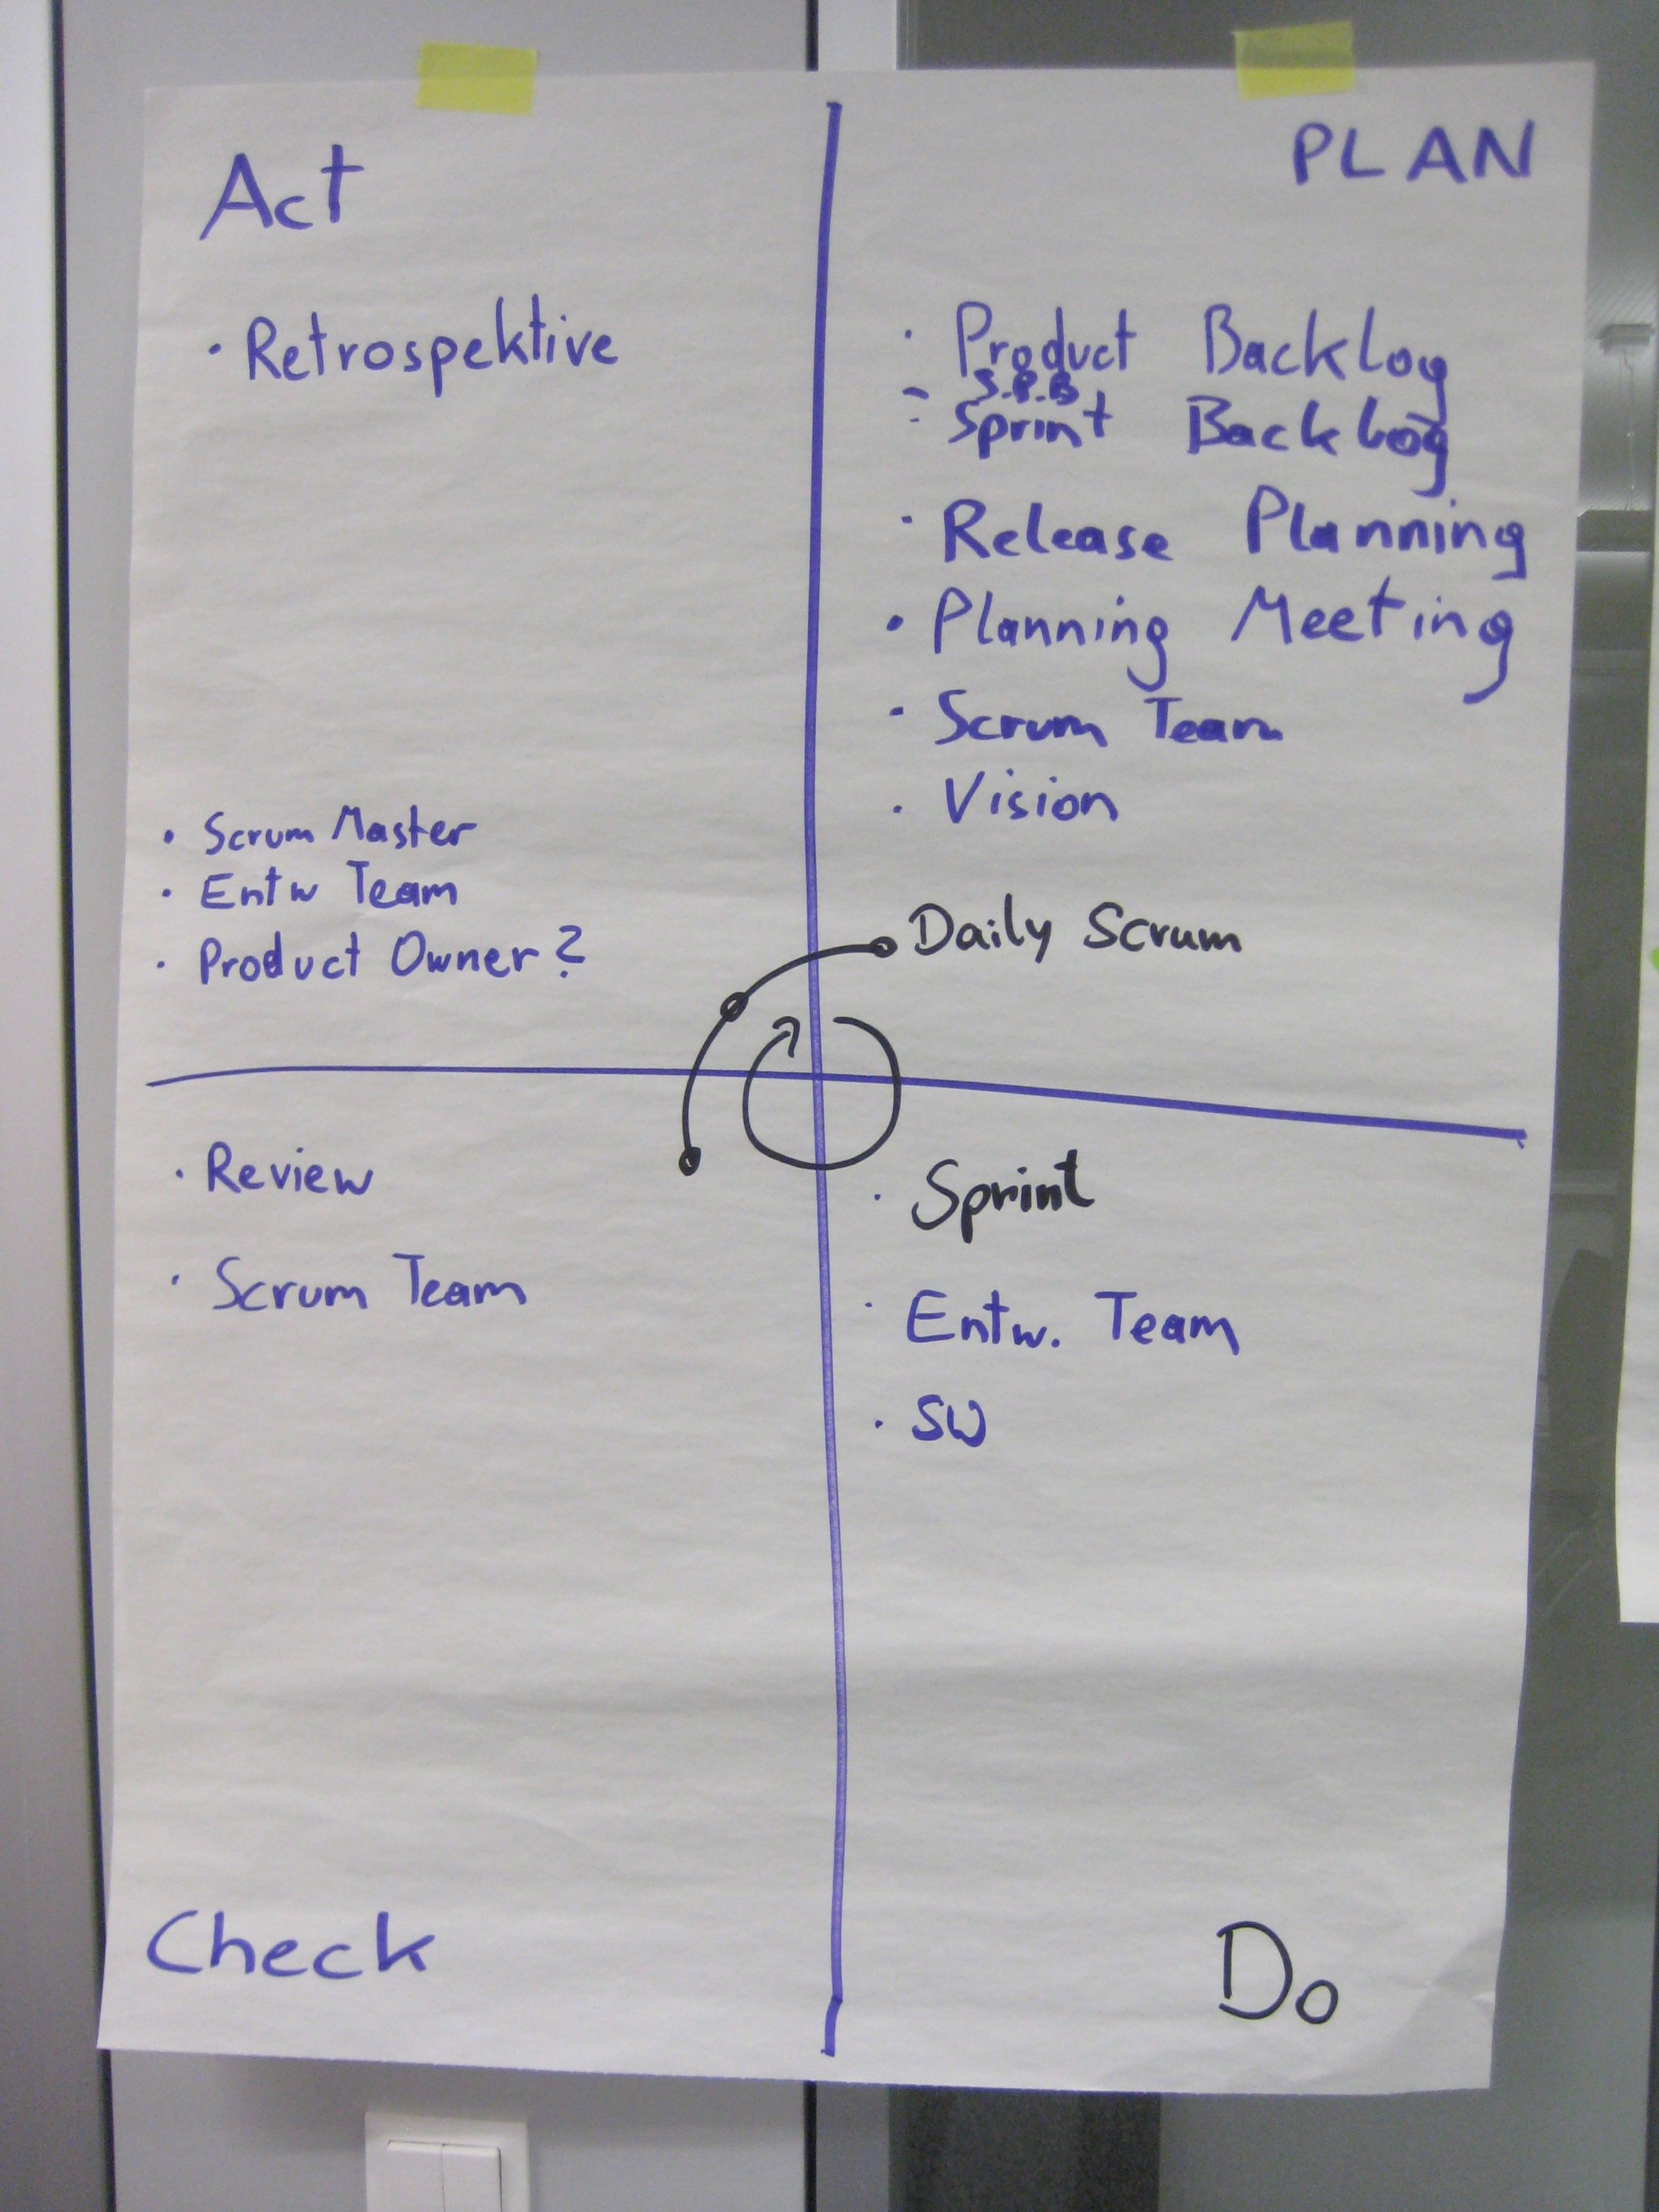 Act
· Retrospektive
· Scrum Master
· Entw Team
· Product Owner?
PLAN
· Product Backlog
- S.P.B
· Sprint Backlog
· Release Planning
· Planning Meeting
· Scrum Team
· Vision
Daily Scrum
· Review
· Scrum Team
Check
· Sprint
· Entw. Team
· SW
Do